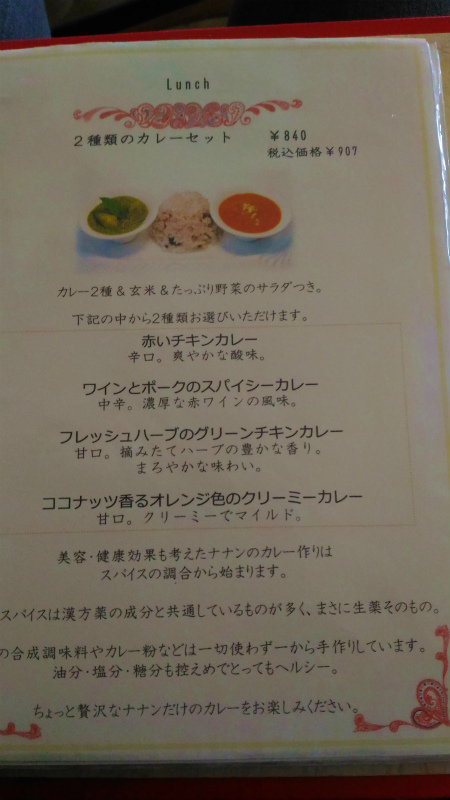 Lunch
２種類のカレーセット ￥840
税込価格￥907
カレー2種＆玄米＆たっぷり野菜のサラダつき。
下記の中から2種類お選びいただけます。
赤いチキンカレー
辛口。爽やかな酸味。
ワインとポークのスパイシーカレー
中辛。濃厚な赤ワインの風味。
フレッシュハーブのグリーンチキンカレー
甘口。摘みたてハーブの豊かな香り。
まろやかな味わい。
ココナッツ香るオレンジ色のクリーミーカレー
甘口。クリーミーでマイルド。
美容・健康効果も考えたナナンのカレー作りは
スパイスの調合から始まります。
スパイスは漢方薬の成分と共通しているものが多く、まさに生薬そのもの。
の合成調味料やカレー粉などは一切使わず一から手作りしています。
油分・塩分・糖分も控えめでとってもヘルシー。
ちょっと贅沢なナナンだけのカレーをお楽しみください。